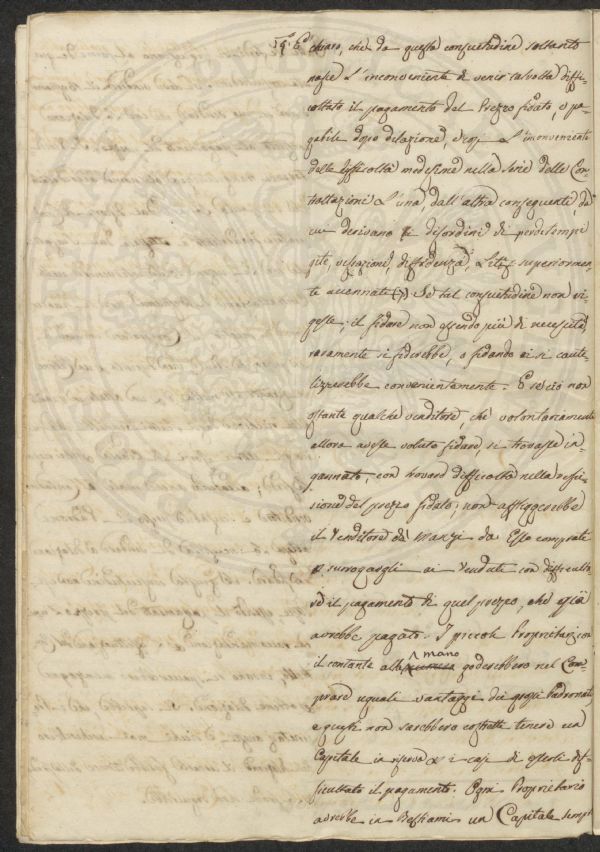 chiaro, che da questa consuetudine soltanto
nasce l'inconveniente di venir talvolta diffi=
coltato il pagamento del Prezzo fidato, o pa=
gabile dopo dilazione, l'inconveniente
delle difficoltà medesime nella serie delle Con=
trattazioni l'una dall'altra conseguente, da
cui derivano disordini di perditempi
vessazione, diffidenza, superiormen=
te accennate (7) Se tal consuetudine non vi=
gesse; il fidare non essendo più di necessità
raramente si fiderebbe, o fidando si caute=
lizzerebbe convenientemente. E se ciò non
ostante qualche venditore, che volontariamente
allora avesse voluto fidare, si trovasse in=
gannato, con trovare difficoltà nella
sione del prezzo fidato; non affliggerebbe
il Venditore de' Manzi da Esso comprati
p. surrogargli ai Venduti con difficulta=
re il pagamento di quel prezzo, che già
avrebbe pagato. I piccoli Proprietarj con
il contante alla mano goderebbero nel Com=
prare uguali vantaggi dei grossi Padronati,
e questi non sarebbero costretti tenere un
Capitale in riserva p. i casi di esserli dif=
ficultato il pagamento. Ogni Proprietario
avrebbe in Bestiami un Capitale sempr